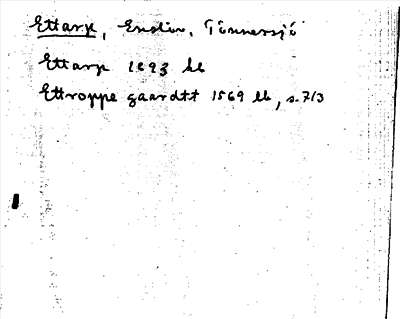 Ettarp, Enslöv, Tönnersjö
Ettarp 1693 kb
Ettroppe gaardtt 1569 lb, s. 713